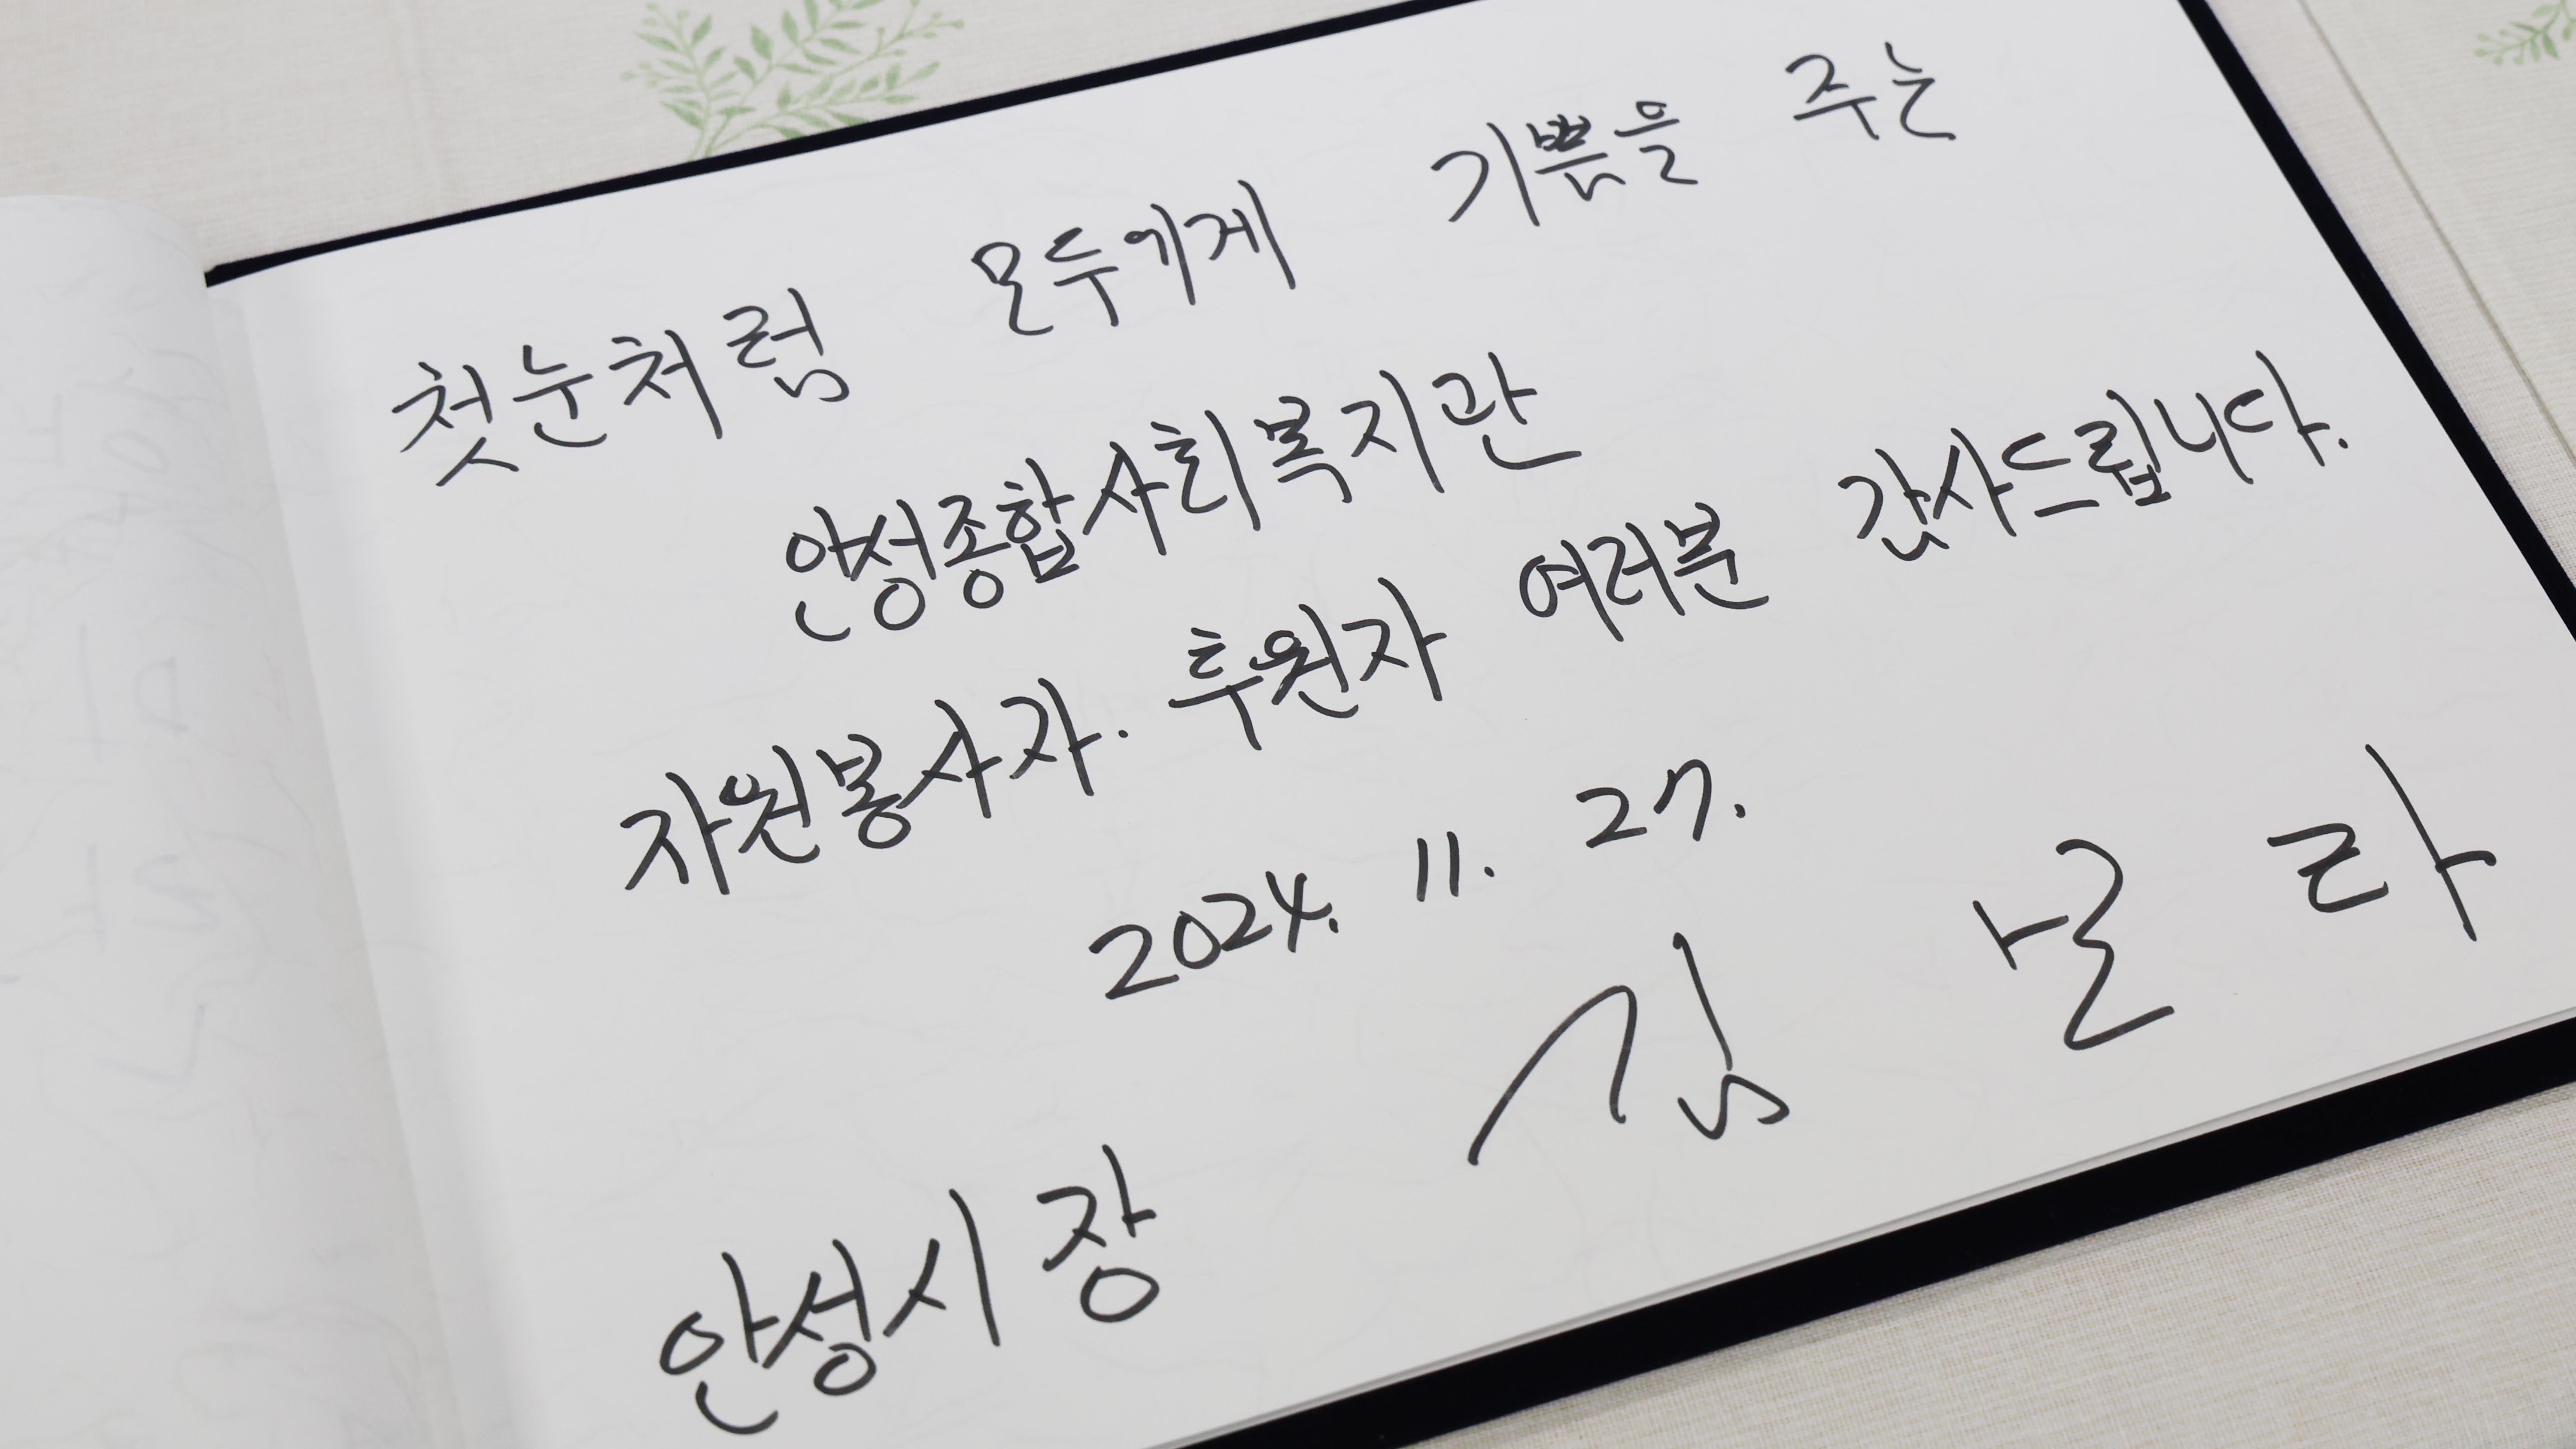 첫눈처럼 모두에게 기쁨을 주는
안성종합사회복지관
자원봉사자. 후원자 여러분 감사드립니다.
2024. 11. 27.
안성시장 김 보 라